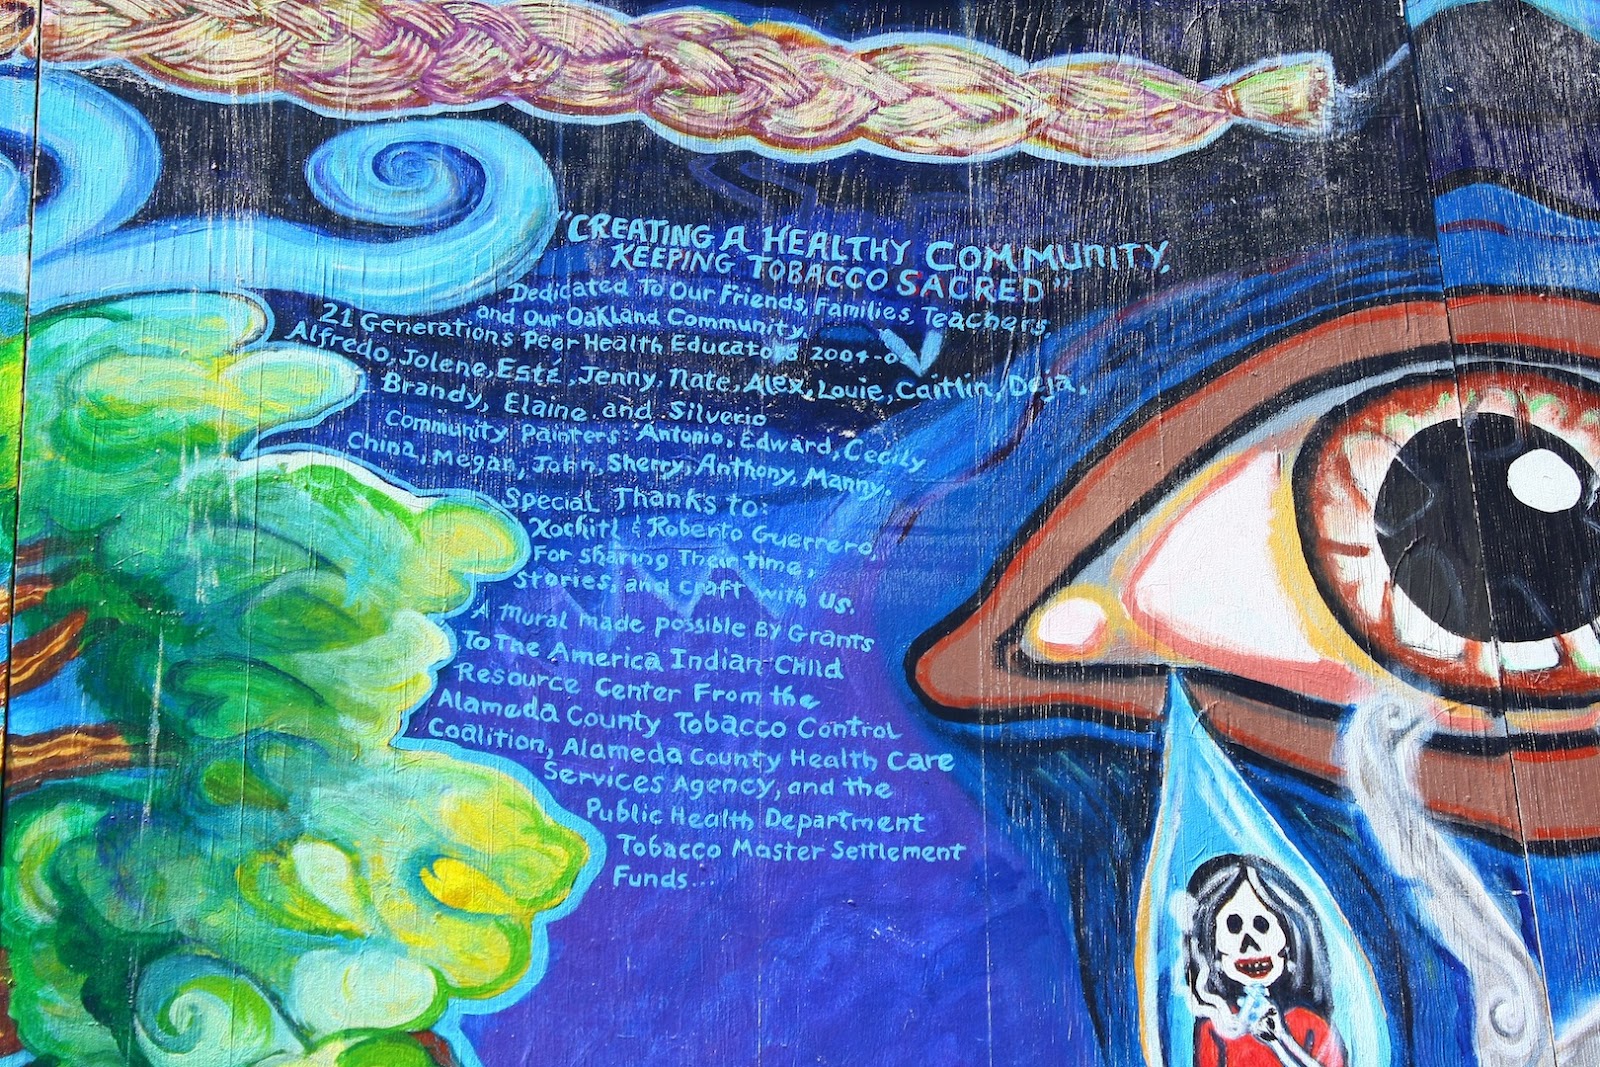 "CREATING A HEALTHY COMMUNITY,
KEEPING TOBACCO SACRED"
Dedicated To Our Friends, Families, Teachers,
and Our Oakland Community.
21 Generations Peer Health Educators 2004-
Alfredo, Jolene, Esté, Jenny, Nate, Alex, Louie, Caitlin, Deja,
Brandy, Elaine and Silverio
Community Painters: Antonio, Edward, Cecily
China, Megan, John, Sherry, Anthony, Manny.
Special Thanks to:
Xochitl & Roberto Guerrero,
For sharing Their time,
Stories, and craft with us.
A Mural Made Possible By Grants
To The America Indian Child
Resource Center From the
Alameda County Tobacco Control
Coalition, Alameda County Health Care
Services Agency, and the
Public Health Department
Tobacco Master Settlement
Funds...